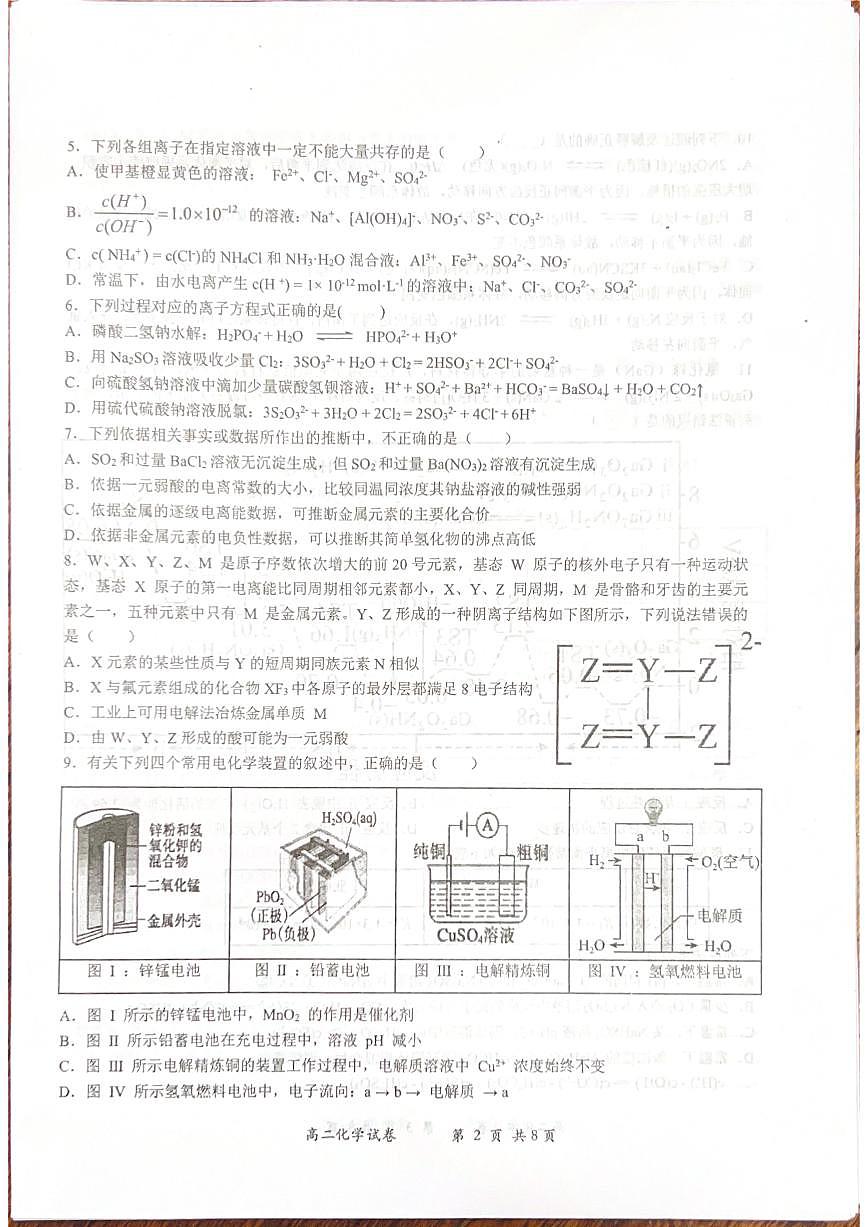 5．下列各组离子在指定溶液中一定不能大量共存的是（　　）
A．使甲基橙显黄色的溶液： Fe²⁺、Cl⁻、Mg²⁺、SO₄²⁻
B．c(H⁺)/c(OH⁻)=1.0×10⁻¹² 的溶液：Na⁺、[Al(OH)₄]⁻、NO₃⁻、S²⁻、CO₃²⁻
C．c( NH₄⁺) = c(Cl⁻)的 NH₄Cl 和 NH₃·H₂O 混合液：Al³⁺、Fe³⁺、SO₄²⁻、NO₃⁻
D．常温下，由水电离产生 c(H ⁺) = 1× 10⁻¹² mol·L⁻¹ 的溶液中：Na⁺、Cl⁻、CO₃²⁻、SO₄²⁻
6．下列过程对应的离子方程式正确的是(　　)
A．磷酸二氢钠水解：H₂PO₄⁻ + H₂O ⇌ HPO₄²⁻ + H₃O⁺
B．用 Na₂SO₃ 溶液吸收少量 Cl₂：3SO₃²⁻ + H₂O + Cl₂ = 2HSO₃⁻ + 2Cl⁻ + SO₄²⁻
C．向硫酸氢钠溶液中滴加少量碳酸氢钡溶液：H⁺ + SO₄²⁻ + Ba²⁺ + HCO₃⁻ = BaSO₄↓ + H₂O + CO₂↑
D．用硫代硫酸钠溶液脱氯：3S₂O₃²⁻ + 3H₂O + 2Cl₂ = 2SO₃²⁻ + 4Cl⁻ + 6H⁺
7．下列依据相关事实或数据所作出的推断中，不正确的是（　　）
A．SO₂ 和过量 BaCl₂ 溶液无沉淀生成，但 SO₂ 和过量 Ba(NO₃)₂ 溶液有沉淀生成
B．依据一元弱酸的电离常数的大小，比较同温同浓度其钠盐溶液的碱性强弱
C．依据金属的逐级电离能数据，可推断金属元素的主要化合价
D．依据非金属元素的电负性数据，可以推断其简单氢化物的沸点高低
8．W、X、Y、Z、M 是原子序数依次增大的前 20 号元素，基态 W 原子的核外电子只有一种运动状
态，基态 X 原子的第一电离能比同周期相邻元素都小，X、Y、Z 同周期，M 是骨骼和牙齿的主要元
素之一，五种元素中只有 M 是金属元素。Y、Z 形成的一种阴离子结构如下图所示，下列说法错误的
是（　　）
A．X 元素的某些性质与 Y 的短周期同族元素 N 相似
B．X 与氟元素组成的化合物 XF₃ 中各原子的最外层都满足 8 电子结构
C．工业上可用电解法冶炼金属单质 M
D．由 W、Y、Z 形成的酸可能为一元弱酸
Z=Y—Z
Z=Y—Z
2-
9．有关下列四个常用电化学装置的叙述中，正确的是（　　）
锌粉和氢
氧化钾的
混合物
二氧化锰
金属外壳
H₂SO₄(aq)
PbO₂
(正极)
Pb(负极)
A
纯铜
粗铜
CuSO₄溶液
a b
H₂
O₂(空气)
H⁺
电解质
H₂O
H₂O
图 I ：锌锰电池
图 II ：铅蓄电池
图 III ：电解精炼铜
图 IV ：氢氧燃料电池
A．图 I 所示的锌锰电池中，MnO₂ 的作用是催化剂
B．图 II 所示铅蓄电池在充电过程中，溶液 pH 减小
C．图 III 所示电解精炼铜的装置工作过程中，电解质溶液中 Cu²⁺ 浓度始终不变
D．图 IV 所示氢氧燃料电池中，电子流向：a→b→ 电解质 →a
高二化学试卷　第 2 页 共 8 页